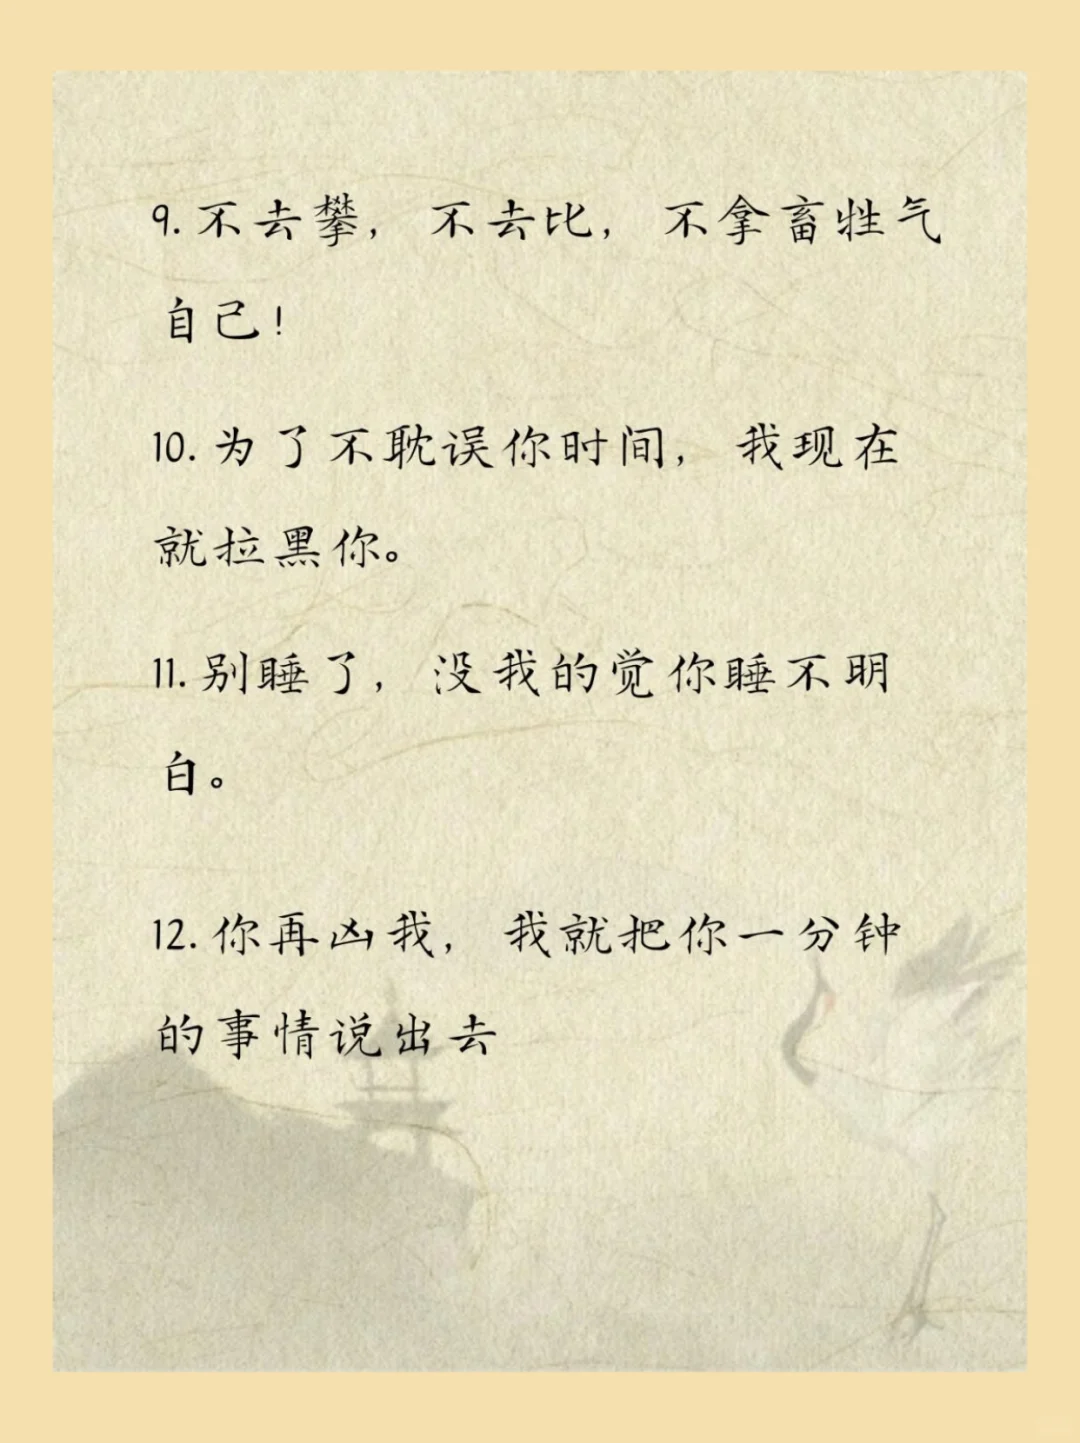 9. 不去攀，不去比，不拿畜牲气
自己！
10. 为了不耽误你时间，我现在
就拉黑你。
11. 别睡了，没我的觉你睡不明
白。
12. 你再凶我，我就把你一分钟
的事情说出去